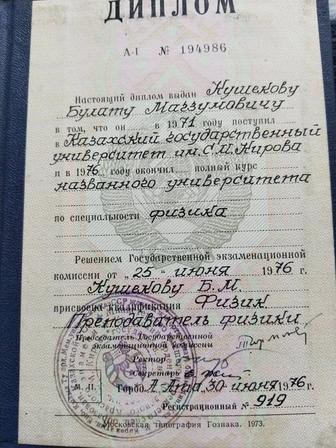 ДИПЛОМ
А-I № 194986
Настоящий диплом выдан Кушекову
Булату Маззумовичу
в том, что он в 1971 году поступил
в Казахский государственный
университет им. С.М. Кирова
и в 1976 году окончил полный курс
названного университета
по специальности физика
Решением Государственной экзаменационной
комиссии от „25" июня 1976 г.
Кушекову Б.М.
присвоена квалификация Физик
Преподаватель физики
Председатель Государственной
экзаменационной комиссии
Ректор
Секретарь
М. П. Город А-Ата, 30 июня 1976 г.
Регистрационный № 919
Московская типография Гознака. 1973.